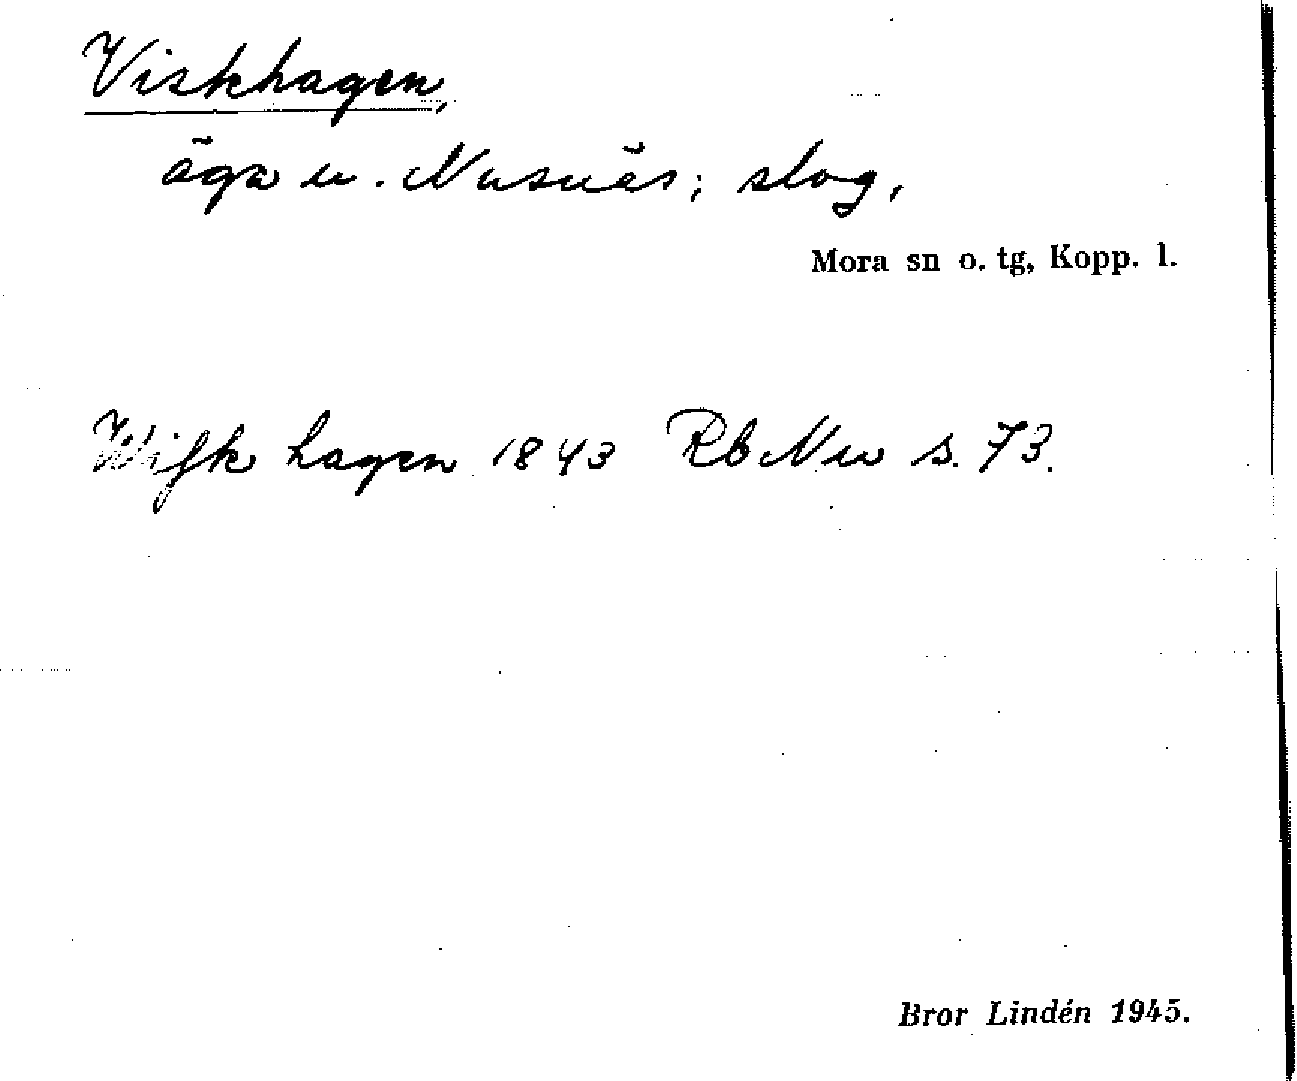 Viskhagen,
äga u. Nusnäs; slog,
Mora sn o. tg, Kopp. l.
Wifk hagen 1843 Rb Nu s. 73.
Bror Lindén 1945.